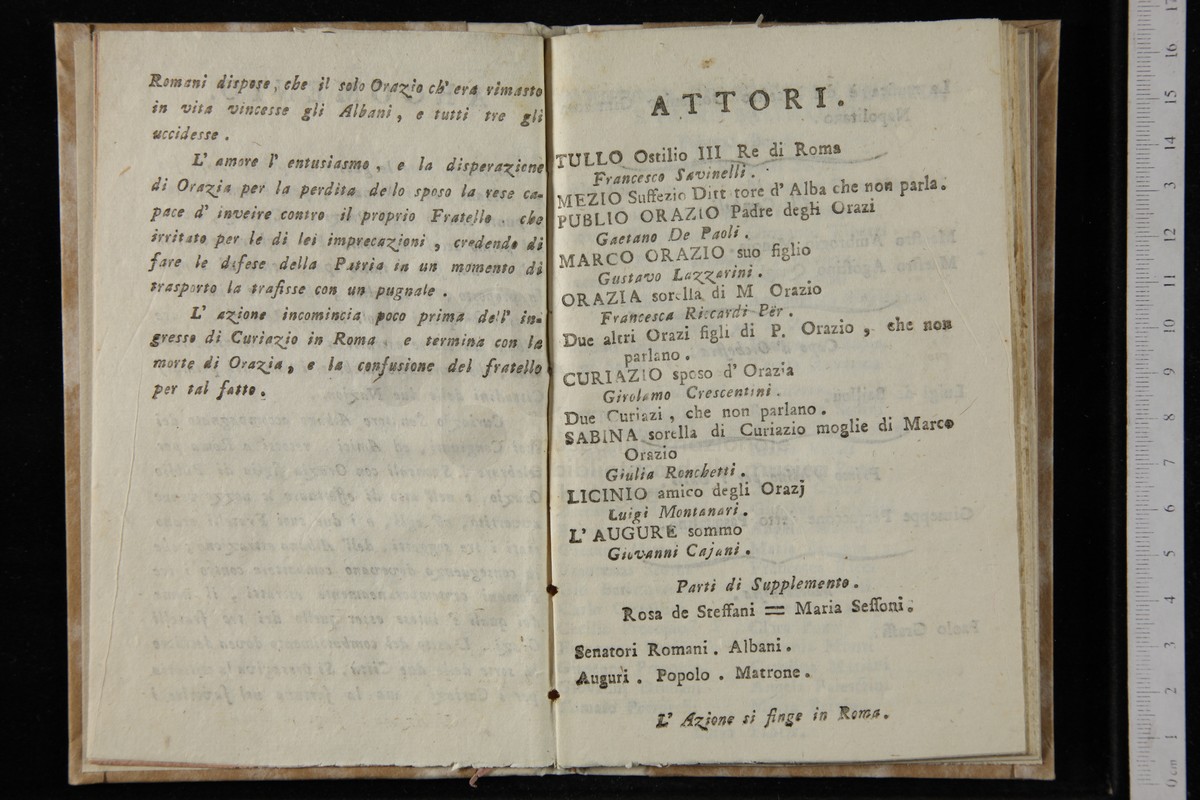 Romani dispose, che il solo Orazio ch' era rimasto
in vita vincesse gli Albani, e tutti tre gli
uccidesse.
L' amore l' entusiasmo, e la disperazione
di Orazia per la perdita dello sposo la rese ca-
pace d' inveire contro il proprio Fratello. che
irritato per le di lei imprecazioni, credendo di
fare le difese della Patria in un momento di
trasporto la trafisse con un pugnale.
L' azione incomincia poco prima dell' in-
gresso di Curiazio in Roma, e termina con la
morte di Orazia, e la confusione del fratello
per tal fatto.
ATTORI.
TULLO Ostilio III Re di Roma
Francesco Savinelli.
MEZIO Suffezio Ditt tore d' Alba che non parla.
PUBLIO ORAZIO Padre degli Orazi
Gaetano De Paoli.
MARCO ORAZIO suo figlio
Gustavo Lazzarini.
ORAZIA sorella di M Orazio
Francesca Riccardi Per.
Due altri Orazi figli di P. Orazio, che non
parlano.
CURIAZIO sposo d' Orazia
Girolamo Crescentini.
Due Curiazi, che non parlano.
SABINA sorella di Curiazio moglie di Marco
Orazio
Giulia Ronchetti.
LICINIO amico degli Orazj
Luigi Montanari.
L' AUGURE sommo
Giovanni Cajani.
Parti di Supplemento.
Rosa de Steffani = Maria Sessoni.
Senatori Romani. Albani.
Auguri. Popolo. Matrone.
L' Azione si finge in Roma.
0 cm 1 2 3 4 5 6 7 8 9 10 11 12 13 14 15 16 17